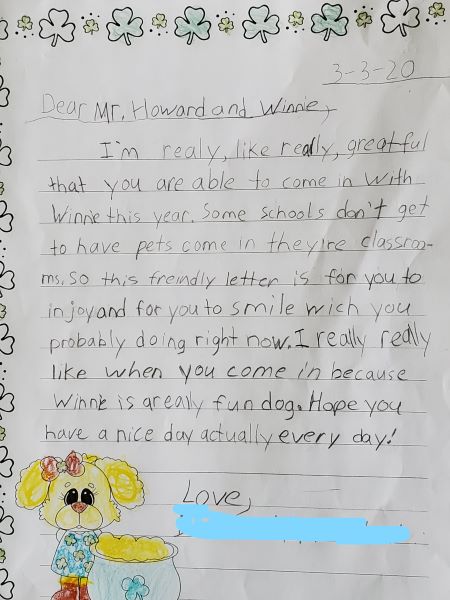 3-3-20
Dear Mr. Howard and Winnie,
I'm realy, like really, greatful
that you are able to come in with
Winnie this year. Some schools don't get
to have pets come in theyire classroo-
ms. So this freindly letter is for you to
injoy and for you to smile wich you
probably doing right now. I really really
like when you come in because
Winnie is a really fun dog. Hope you
have a nice day actually every day!
Love,